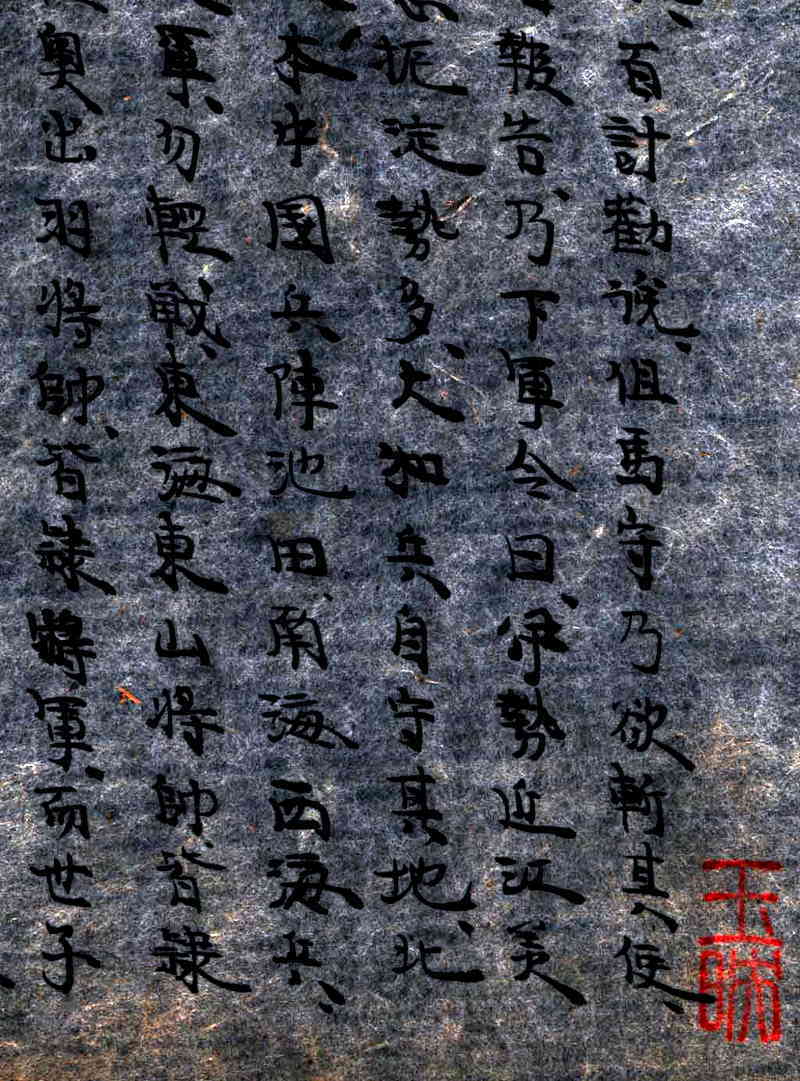 百計勸說、但馬守乃欲斬其使、
報告、乃下軍令曰、伊勢近江美
扼淀勢多、大和兵自守其地、北
本中國兵陣池田、南海西海兵、
軍、勿輕戰、東海東山將帥皆隸
奧出羽將帥、皆隸將軍、而世子
玉